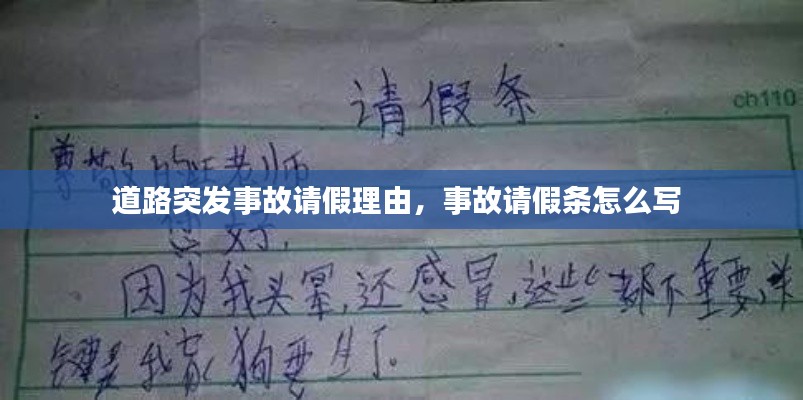 请假条
ch110
尊敬的汪老师
道路突发事故请假理由，事故请假条怎么写
您好，
因为我头晕，还感冒，这些都不重要，关
键是我家狗要生了。